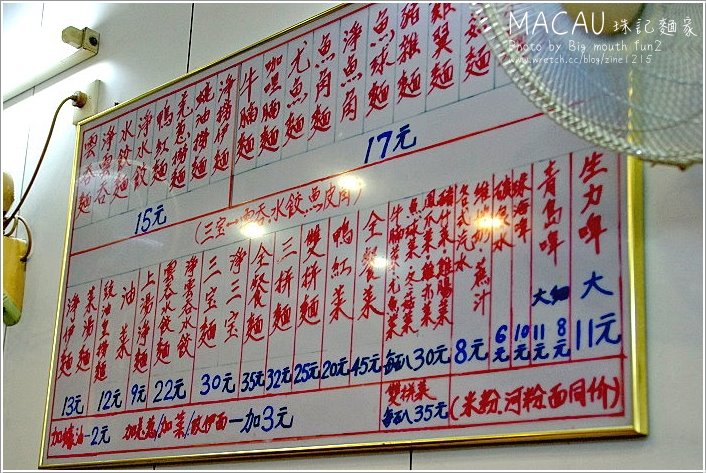 MACAU 珠記麵家
Photo by Big mouth fun2
www.wretch.cc/blog/zine1215
雲吞麵
淨雲吞
水餃麵
淨水餃
鴨紅麵
蠔油撈麵
淨撈伊麵
15元
牛腩麵
咖喱腩麵
尤魚麵
魚角麵
淨魚角
魚球麵
豬雜麵
雞翼麵
17元
(三宝=雲吞水餃魚皮角)
淨伊麵
13元
菜湯麵
豉油皇撈麵
12元
油菜
9元
上湯淨麵
雲吞水餃麵
淨雲吞水餃
22元
三宝麵
淨三宝
30元
全餐麵
35元
三拼麵
32元
雙拼麵
25元
鴨紅菜
20元
全餐菜
45元
每八30元
各式汽水
維他奶 蔗汁
8元
礦泉水
6元
珠海啤
10元
青島啤
大 細
11元 8元
生力啤
大
11元
加蠔油-2元
加菜/改伊面-加3元
雙拼菜
每八35元
(米粉.河粉.面同价)